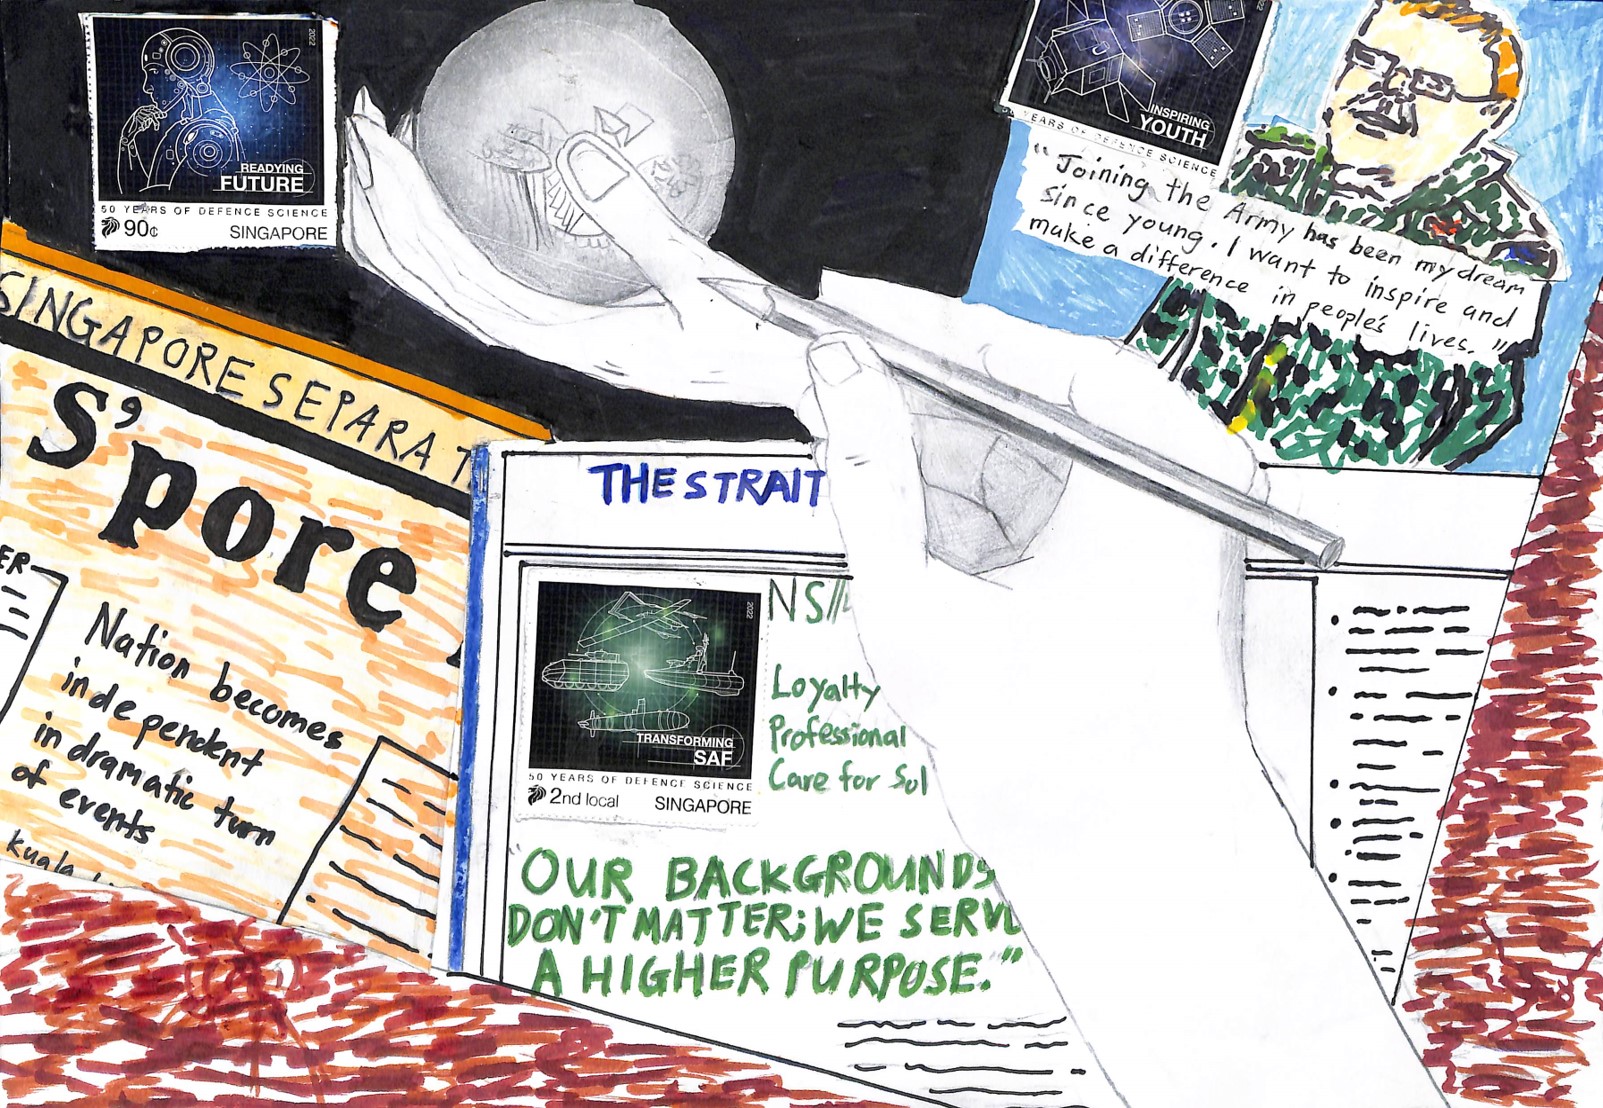 2022
READYING
FUTURE
50 YEARS OF DEFENCE SCIENCE
90¢ SINGAPORE
2022
INSPIRING
YOUTH
YEARS OF DEFENCE SCIENCE
"Joining the Army has been my dream
since young. I want to inspire and
make a difference in people's lives."
SINGAPORE SEPARAT
S'pore
ER
Nation becomes
independent
in dramatic turn
of events
Kuala
THE STRAIT
2022
TRANSFORMING
SAF
50 YEARS OF DEFENCE SCIENCE
2nd local SINGAPORE
NS
Loyalty
Professional
Care for Sol
"OUR BACKGROUNDS
DON'T MATTER; WE SERVE
A HIGHER PURPOSE."